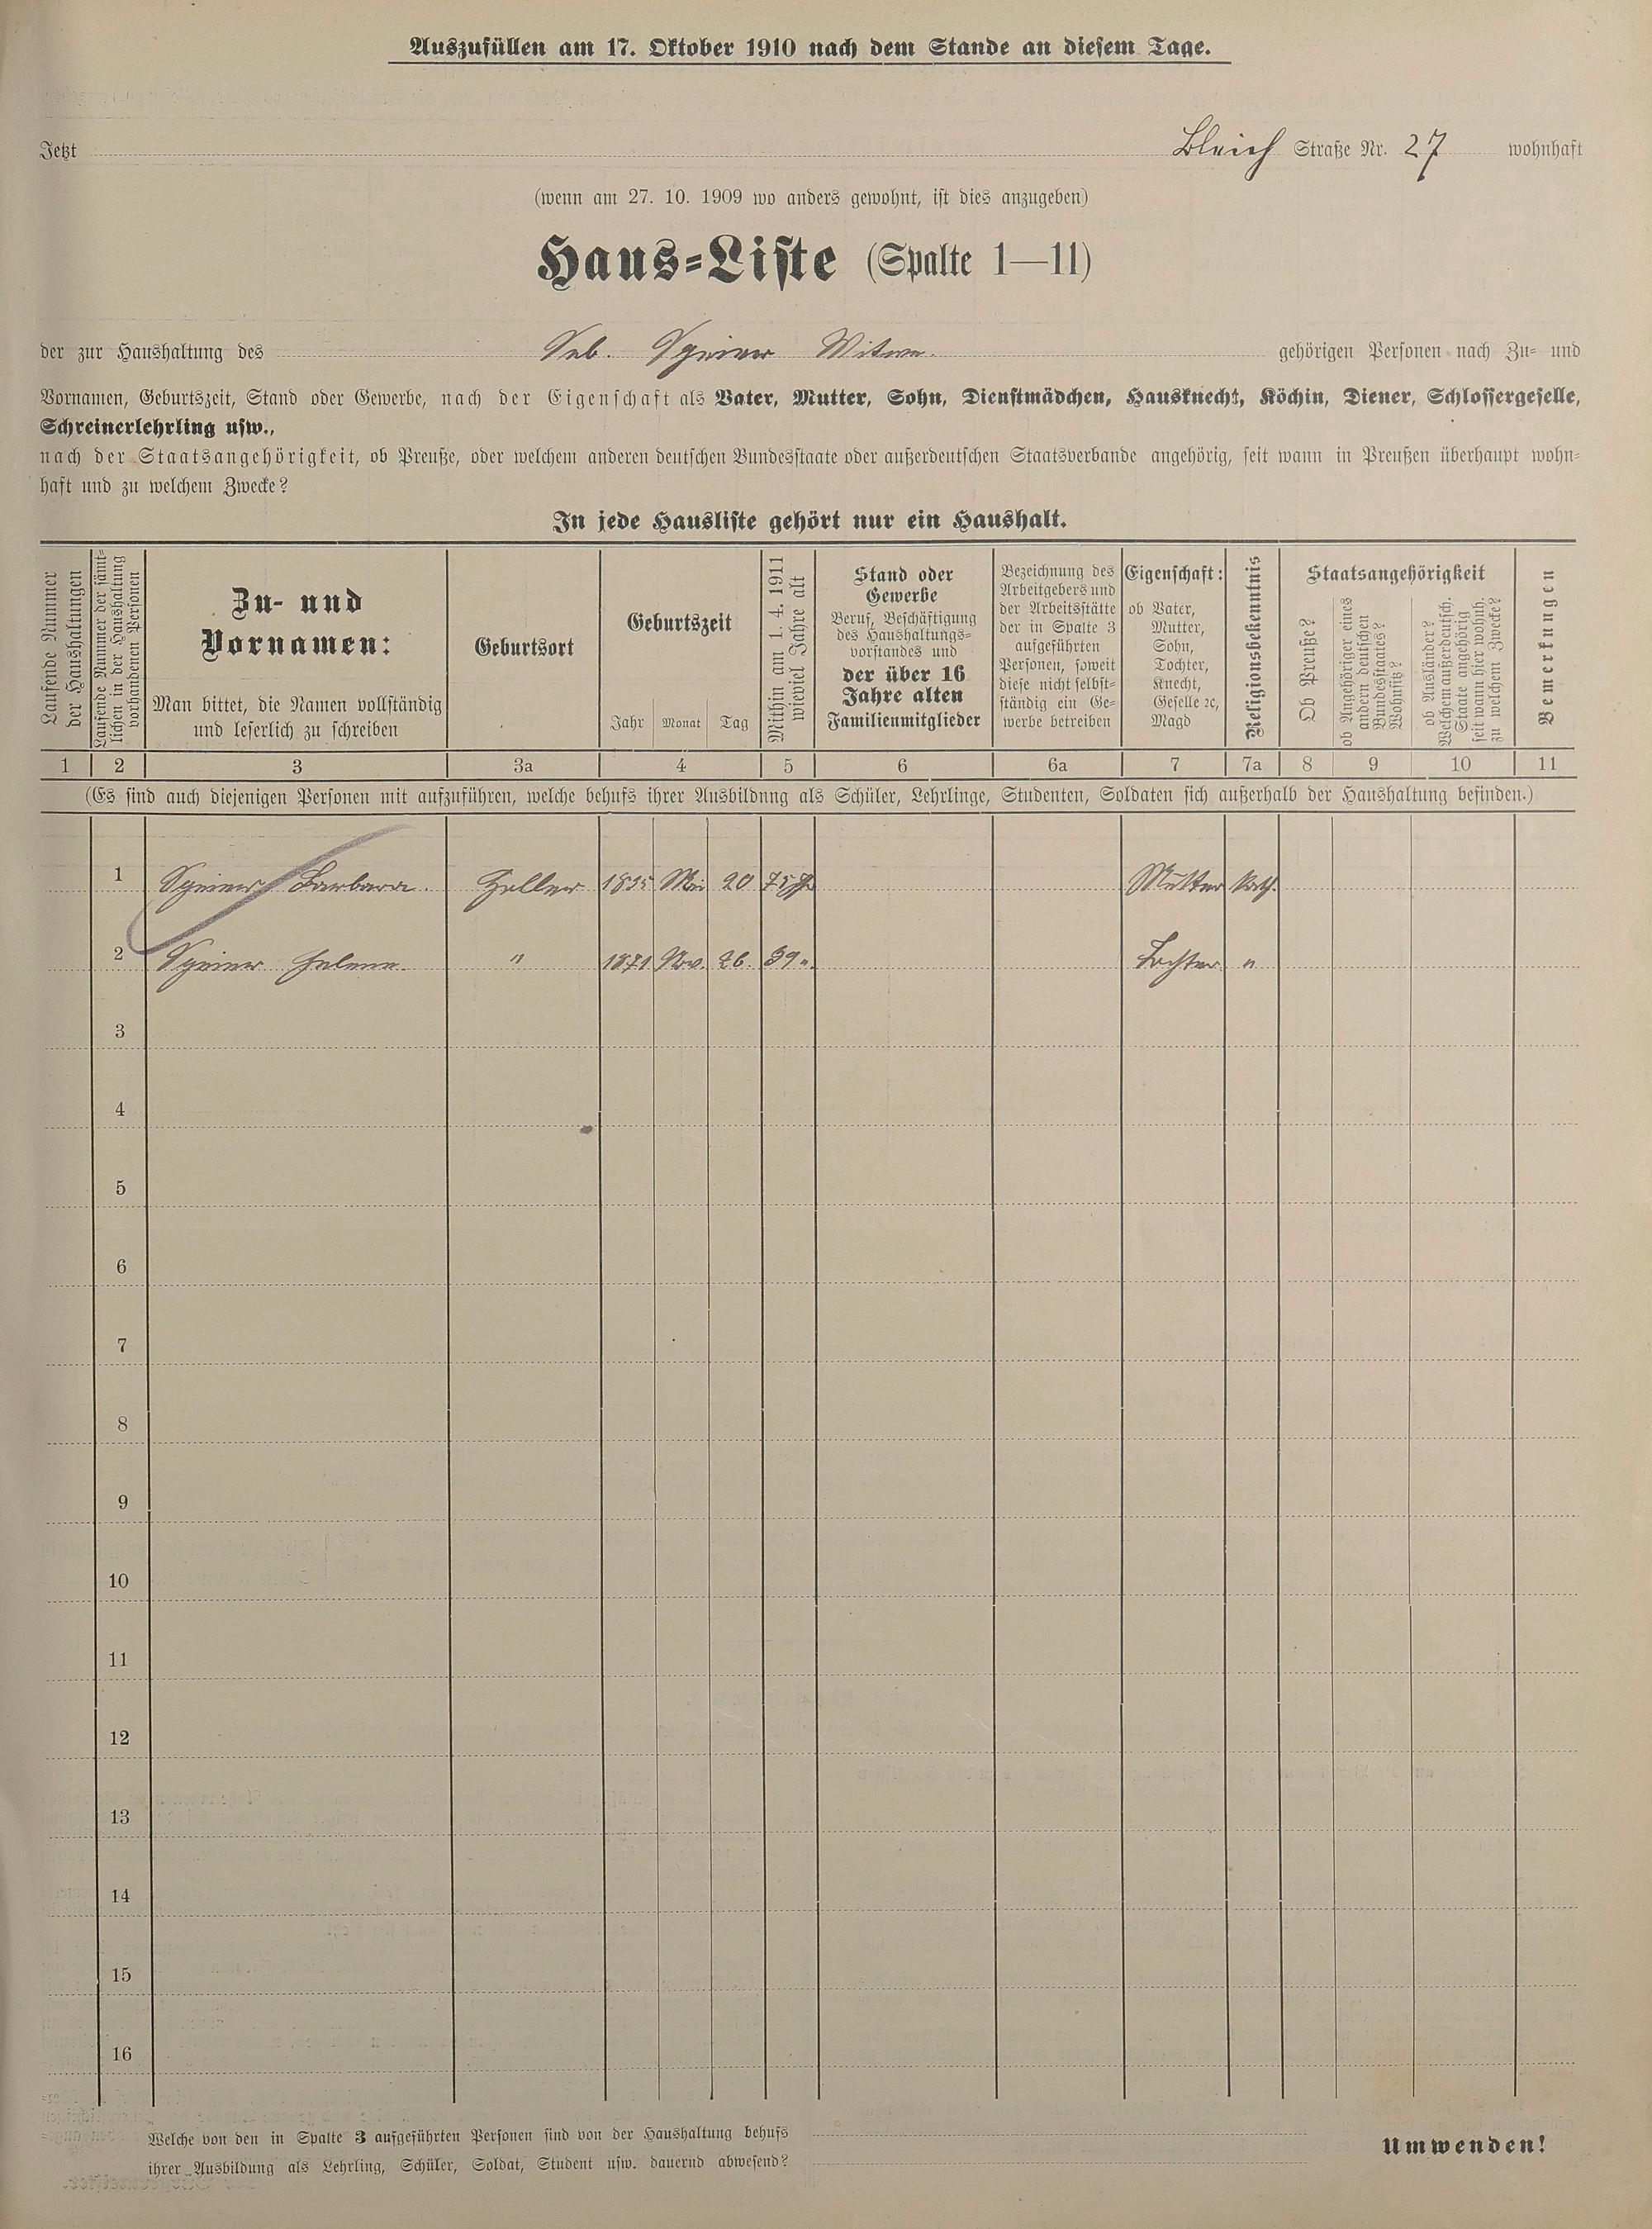 Auszufüllen am 17. Oktober 1910 nach dem Stande an diesem Tage.
Jetzt Bleich Straße Nr. 27 wohnhaft
(wenn am 27. 10. 1909 wo anders gewohnt, ist dies anzugeben)
Haus-Liste (Spalte 1—11)
der zur Haushaltung des Seb. Witwe gehörigen Personen nach Zu- und
Vornamen, Geburtszeit, Stand oder Gewerbe, nach der Eigenschaft als Vater, Mutter, Sohn, Dienstmädchen, Hausknecht, Köchin, Diener, Schlossergeselle,
Schreinerlehrling usw.,
nach der Staatsangehörigkeit, ob Preuße, oder welchem anderen deutschen Bundesstaate oder außerdeutschen Staatsverbande angehörig, seit wann in Preußen überhaupt wohn-
haft und zu welchem Zwecke?
In jede Hausliste gehört nur ein Haushalt.
Laufende Nummer
der Haushaltungen
Laufende Nummer der sämt-
lichen in der Haushaltung
vorhandenen Personen
Zu- und
Vornamen:
Man bittet, die Namen vollständig
und leserlich zu schreiben
Geburtsort
Geburtszeit
Jahr Monat Tag
Mithin am 1. 4. 1911
wieviel Jahre alt
Stand oder
Gewerbe
Beruf, Beschäftigung
des Haushaltungs-
vorstandes und
der über 16
Jahre alten
Familienmitglieder
Bezeichnung des
Arbeitgebers und
der Arbeitsstätte
der in Spalte 3
aufgeführten
Personen, soweit
diese nicht selbst-
ständig ein Ge-
werbe betreiben
Eigenschaft:
ob Vater,
Mutter,
Sohn,
Tochter,
Knecht,
Geselle ꝛc,
Magd
Religionsbekenntnis
Staatsangehörigkeit
Ob Preuße?
ob Angehöriger eines
andern deutschen
Bundesstaates?
Wohnsitz?
ob Ausländer?
Welchem außerdeutsch.
Staate angehörig
seit wann hier wohnh.
zu welchem Zwecke?
Bemerkungen
1 2 3 3a 4 5 6 6a 7 7a 8 9 10 11
(Es sind auch diejenigen Personen mit aufzuführen, welche behufs ihrer Ausbildung als Schüler, Lehrlinge, Studenten, Soldaten sich außerhalb der Haushaltung befinden.)
1 Barbara. 1835 Mai 20 75 Mutter kath.
2 Helene. " 1871 Nov. 26. 39 " Tochter "
3
4
5
6
7
8
9
10
11
12
13
14
15
16
Welche von den in Spalte 3 aufgeführten Personen sind von der Haushaltung behufs
ihrer Ausbildung als Lehrling, Schüler, Soldat, Student usw. dauernd abwesend?
Umwenden!